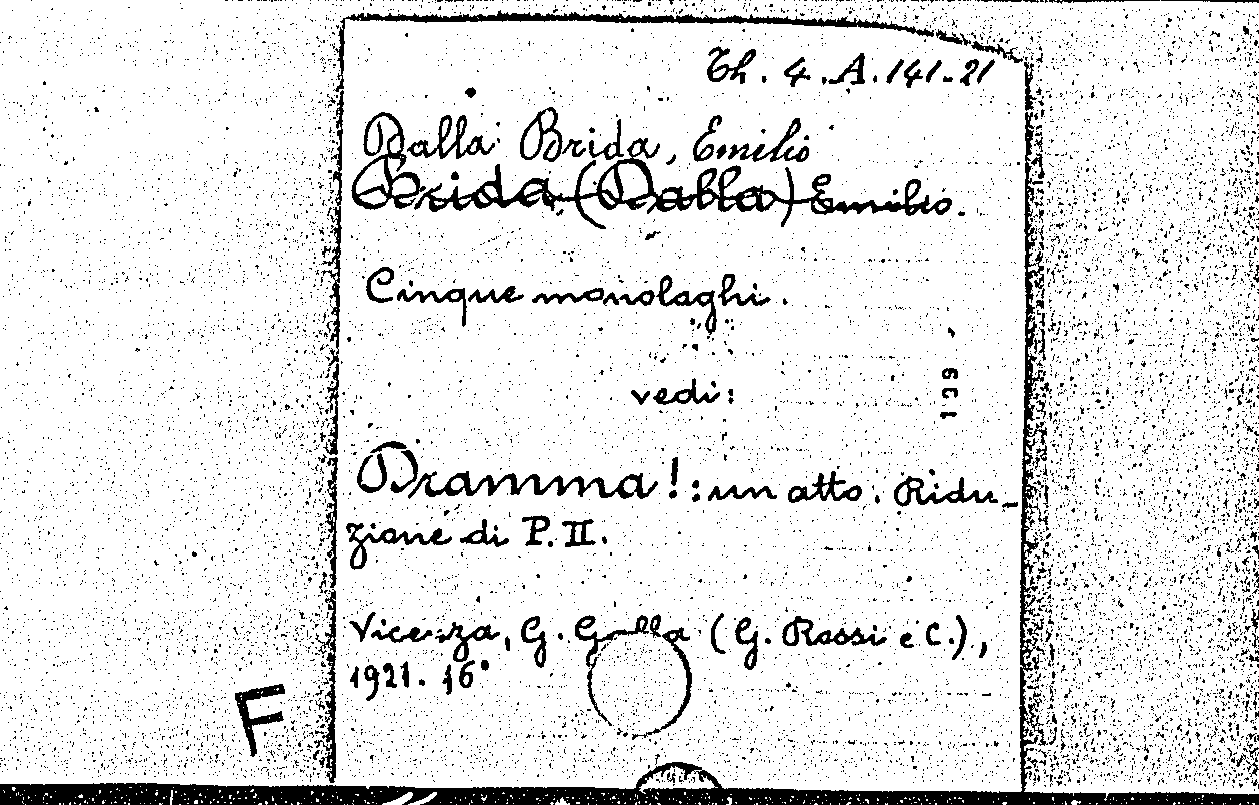 Th. 4. A. 141. 21
Dalla Brida, Emilio
Brida (Dalla) Emilio.
Cinque monologhi.
vedi:
Dramma! : un atto. Ridu-
zione di P. II.
Vicenza, G. Galla (G. Rossi e C.),
1921. 16°
F